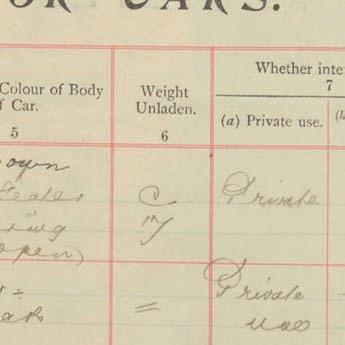 OR CARS.
Colour of Body
f Car.
5
Weight
Unladen.
6
Whether inte
7
(a) Private use.
own
Seater
ring
open)
C
Private
Private
use
=